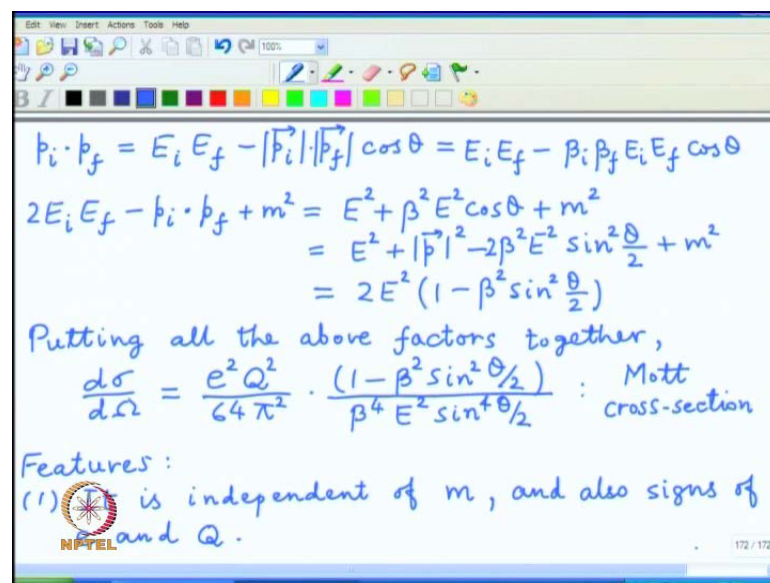 Edit View Insert Actions Tools Help
100%
B I
p_i · p_f = E_i E_f − |p⃗_i|·|p⃗_f| cosθ = E_i E_f − β_i β_f E_i E_f cosθ
2E_i E_f − p_i · p_f + m² = E² + β² E² cosθ + m²
= E² + |p⃗|² − 2β² E² sin² θ/2 + m²
= 2E² (1 − β² sin² θ/2)
Putting all the above factors together,
dσ/dΩ = e² Q²/64 π² · (1 − β² sin² θ/2)/β⁴ E² sin⁴ θ/2 : Mott cross-section
Features :
(1) It is independent of m, and also signs of
and Q.
NPTEL
172 / 172